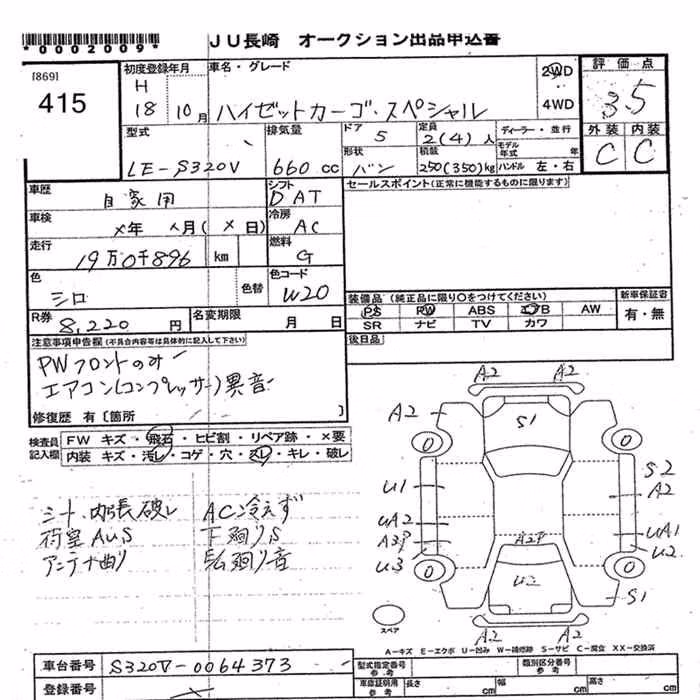 *0002009*
JU長崎 オークション出品申込書
[869]
415
初度登録年月
H
18 10月
車名・グレード
ハイゼットカーゴ・スペシャル
2WD
4WD
評価点
3.5
外装 内装
C C
型式
LE-S320V
排気量
660cc
ドア
5
形状
バン
定員
2(4)人
積載
250(350)kg
ディーラー・並行
モデル年式 年
ハンドル 左・右
車歴
自家用
シフト
DAT
車検
×年 ×月(×日)
冷房
AC
走行
19万0千896 km
燃料
G
色
シロ
色替
色コード
W20
R券
8,220円
名変期限
月 日
セールスポイント(正常に機能するものに限ります)
装備品(純正品に限り○をつけてください)
PS PW ABS エアB AW
SR ナビ TV カワ
新車保証書
有・無
後日品
注意事項申告欄(不具合内容等は具体的に記入して下さい)
PWフロントのみ
エアコン(コンプレッサー)異音
修復歴 有〔箇所 〕
検査員記入欄
FW キズ・飛石・ヒビ割・リペア跡・×要
内装 キズ・汚レ・コゲ・穴・スレ・キレ・破レ
シート、内張破レ AC冷えず
荷室AUS 下廻りS
アンテナ曲り 足廻り音
A2 A2
A2 S1
0 0
U1 S2
A2
UA2 UA1
A3P A2P U2
U3
0 U2 0
S1
A2 A2
スペア
A-キズ E-エクボ U-凹み W-補修跡 S-サビ C-腐食 XX-交換済
車台番号 S320V-0064373
登録番号
型式指定番号
参考
類別区分番号
参考
車庫証明用
参考
長さ cm
幅 cm
高さ cm